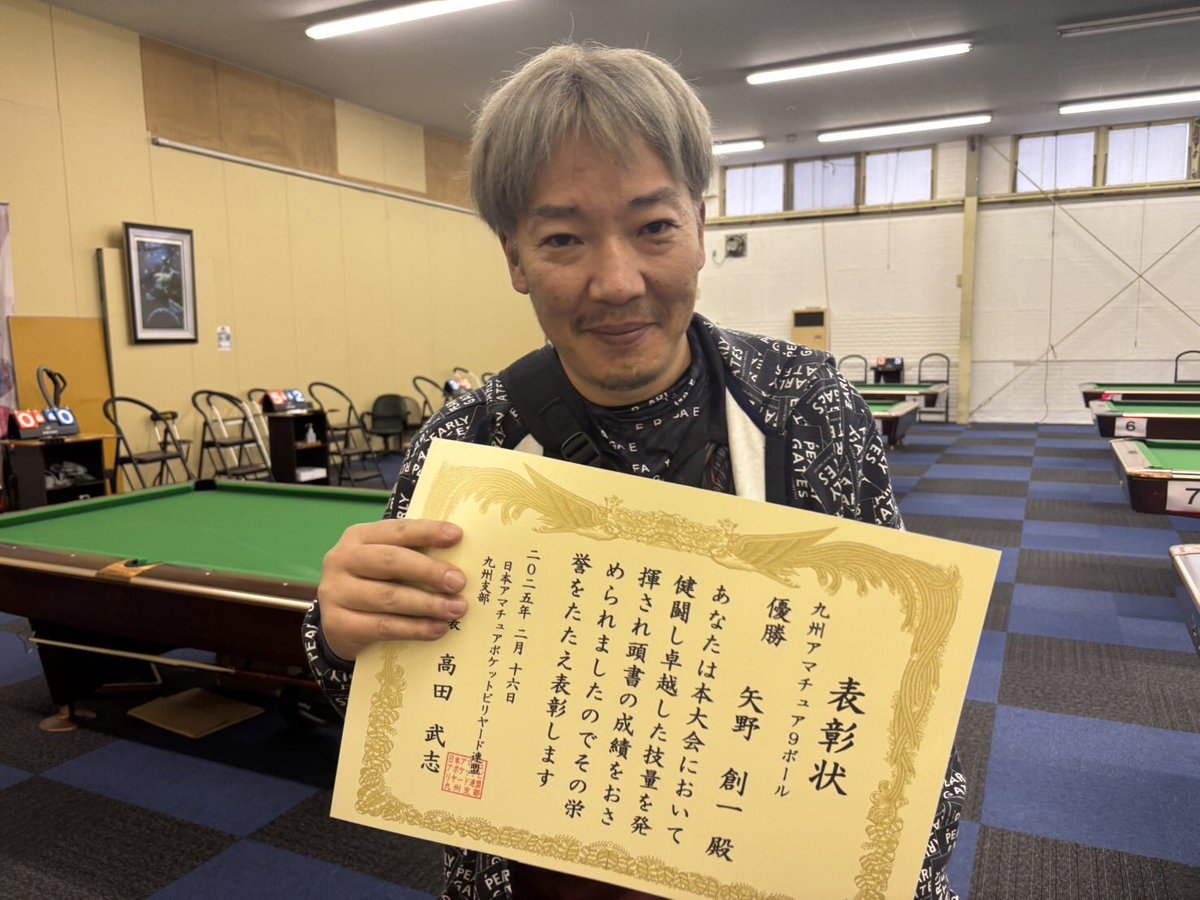 表彰状
九州アマチュア9ボール
優勝
矢野 創一 殿
あなたは本大会において
健闘し卓越した技量を発
揮され頭書の成績をおさ
められましたのでその栄
誉をたたえ表彰します
二〇二五年 二月 十六日
日本アマチュアポケットビリヤード連盟
九州支部
表 高田 武志
PEARLY
GATES
0
0
5
2
6
7